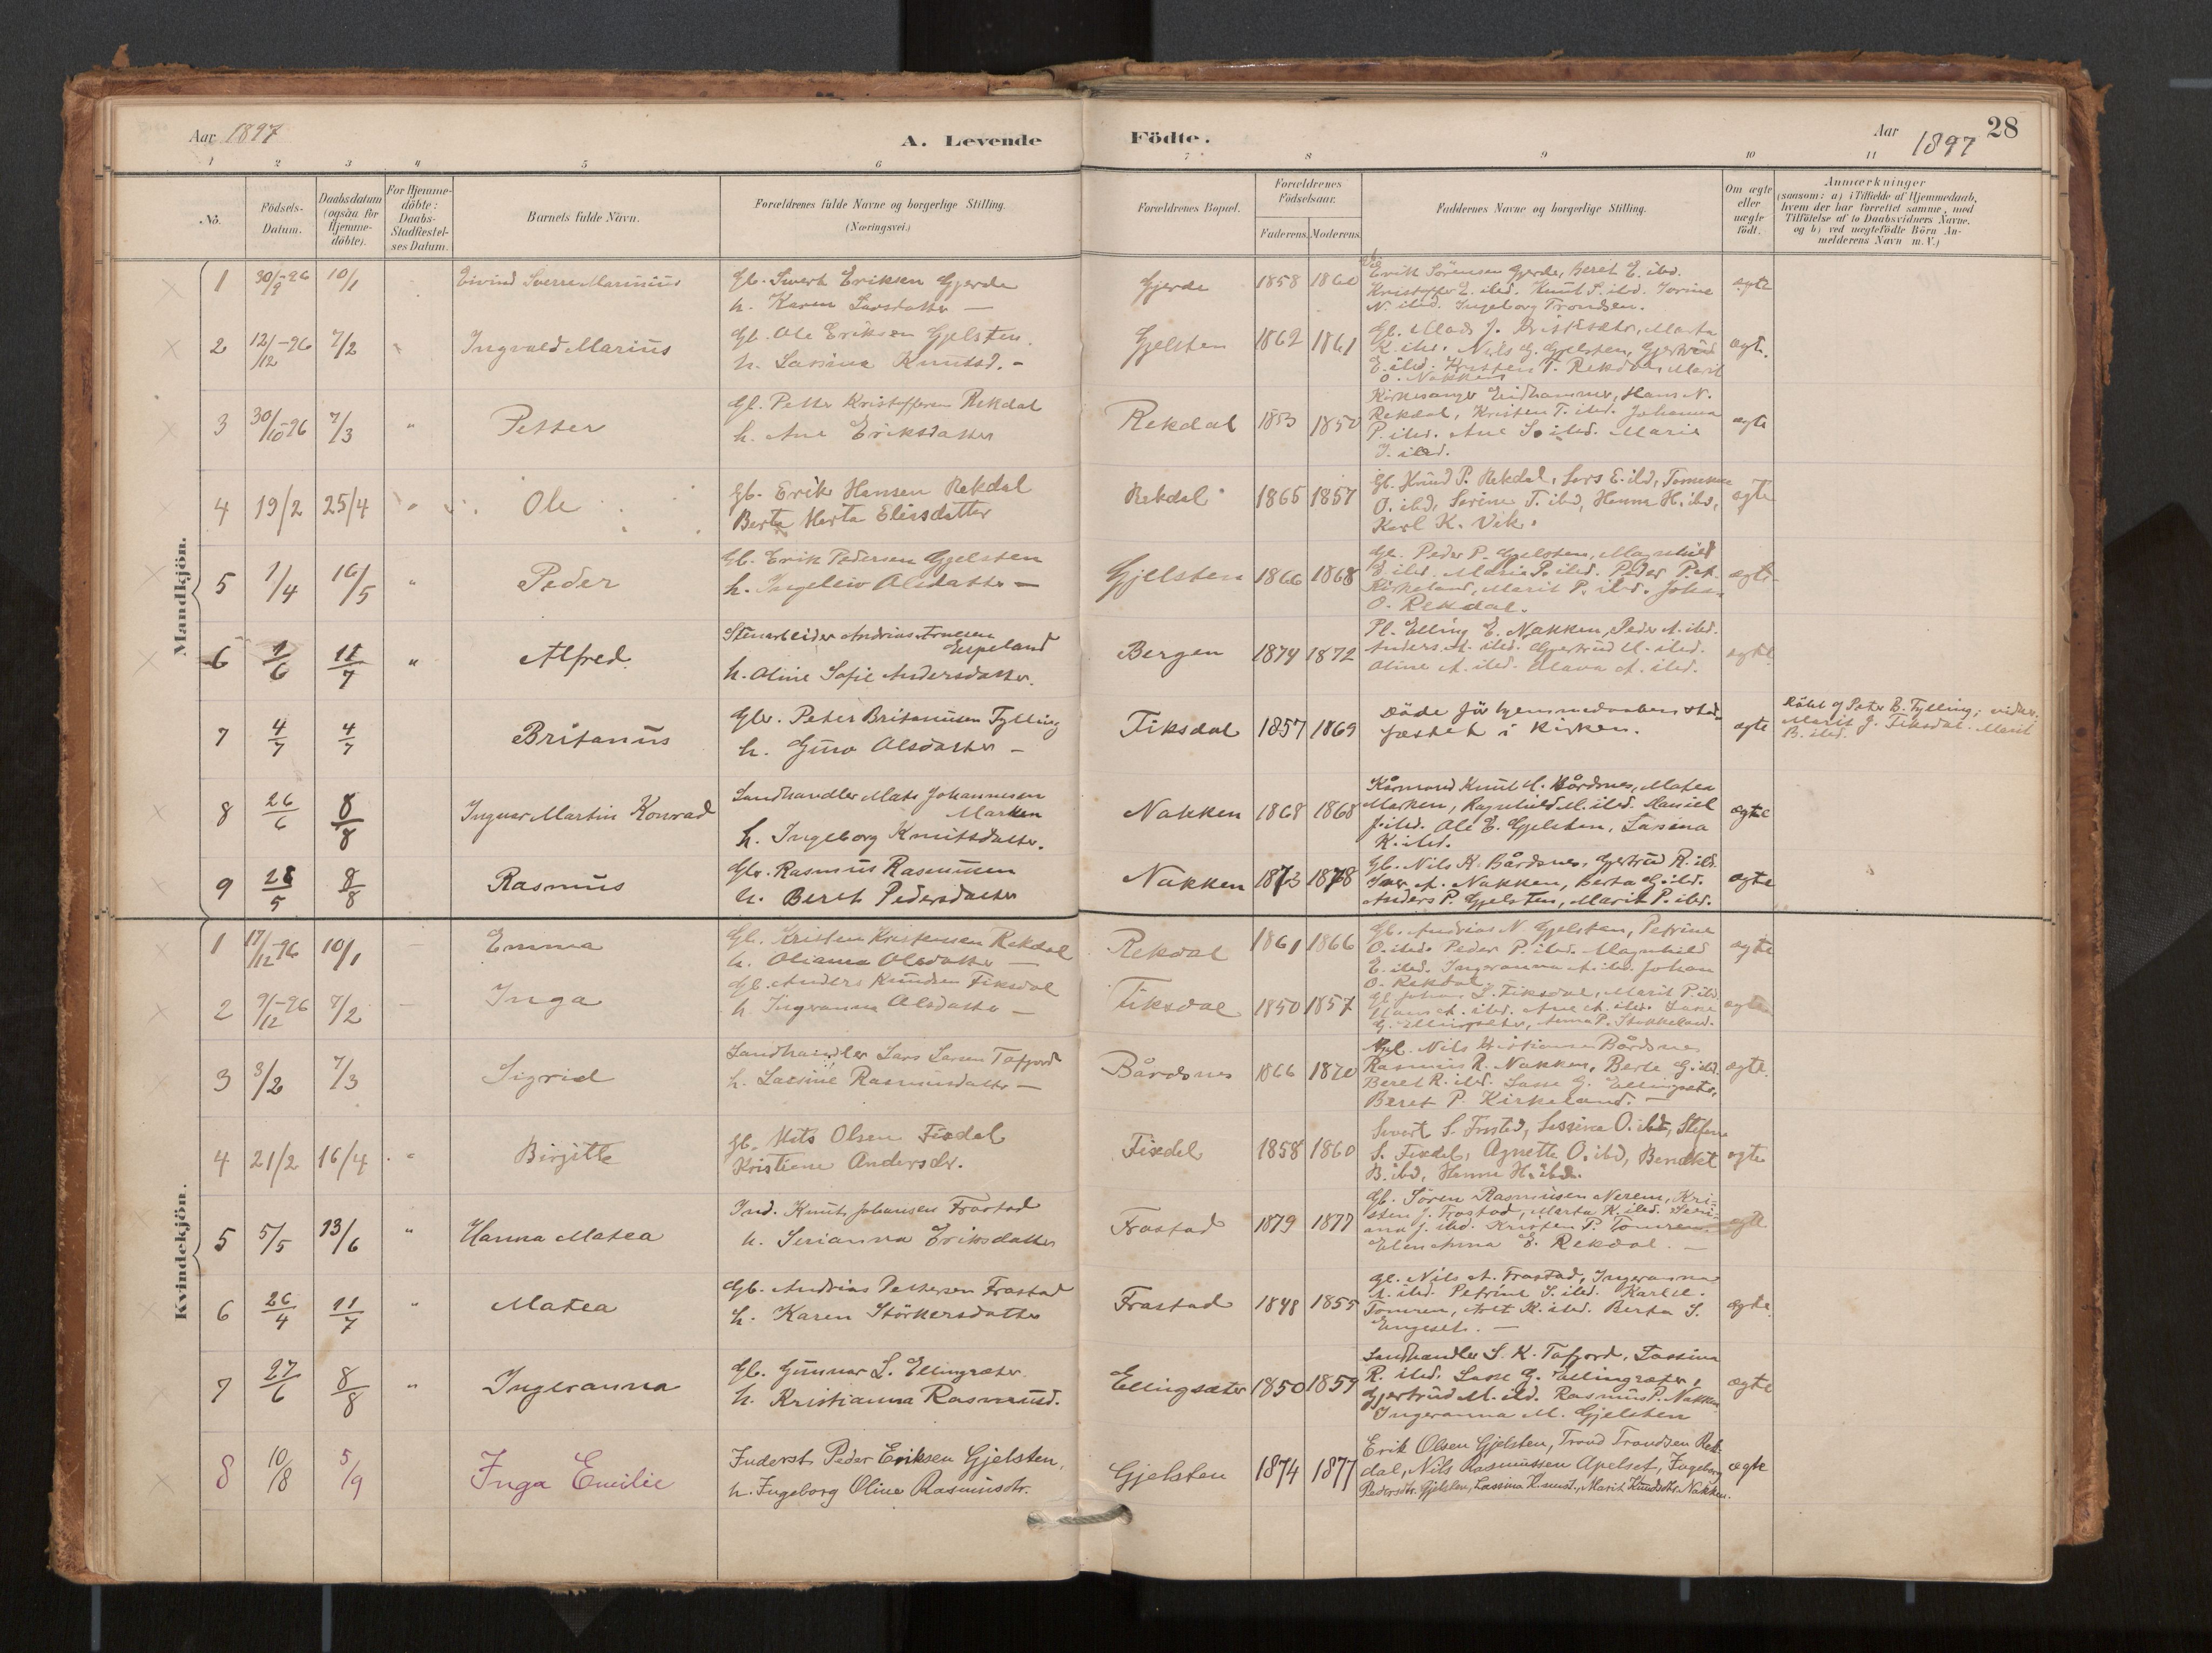 Aar 1897
A. Levende
Födte.
Aar 1897
28
1 2 3 4 5 6 7 8 9 10 11
No.
Födsels-
Datum.
Daabsdatum
(ogsaa for
Hjemme-
döbte).
For Hjemme-
döbte:
Daabs-
Stadfæstel-
ses Datum.
Barnets fulde Navn.
Forældrenes fulde Navne og borgerlige Stilling.
(Næringsvei.)
Forældrenes Bopæl.
Forældrenes
Födselsaar.
Faderens. Moderens.
Faddernes Navne og borgerlige Stilling.
Om ægte
eller
uægte
födt.
Anmærkninger
(saasom: a) i Tilfælde af Hjemmedaab,
hvem der har forrettet samme, med
Tilföielse af to Daabsvidners Navne.
og b) ved uægtefödte Börn An-
melderens Navn m. V.)
Mandkjön.
1 30/9-96 10/1 Eivind Sverre Marinius
Gb. Sivert Eriksen Gjerde
h. Karen Larsdatter —
Gjerde 1858 1860
Erik Sörensen Gjerde, Beret E. ibd.
Kristoffer E. ibd. Knut S. ibd. Jorine
N. ibd. Ingeborg Trondsen.
ægte
2 12/12-96 7/2 " Ingvald Marius
Gb. Ole Eriksen Gjelsten.
h. Lassina Knutsd. -
Gjelsten 1862 1861
Gb. Mads J. Marta
K. ibd. Nils G. Gjelsten, Gjertrud
E. ibd. Kristen T. Rekdal, Marit
O. Nakken
ægte.
3 30/10-96 7/3 " Petter
Gl. Petter Kristoffersen Rekdal
h. Ane Eriksdatter
Rekdal 1853 1850
Kirkesanger Eidhammer, Hans N.
Rekdal, Kristen T. ibd. Johanna
P. ibd. Ane S. ibd. Marie
J. ibd.
ægte
4 19/2 25/4 " Ole
Gb. Erik Hansen Rekdal
Berte Marta Eliasdatter
Rekdal 1865 1857
Gb. Knud P. Rekdal, Lars E. ibd,
O. ibd, Serine T. ibd, Hanna H. ibd,
Karl K. Vik.
ægte
5 1/4 16/5 " Peder
Gb. Erik Pedersen Gjelsten
h. Ingeleiv Olsdatter —
Gjelsten 1866 1868
Gl. Peder P. Gjelsten, Magnhild
E. ibd. Maria P. ibd. Peder P.
Kirkeland, Marit P. ibd. Johan
O. Rekdal.
ægte
6 1/6 11/7 " Alfred.
Stenarbeider Andrias Arnesen
Espeland
h. Oline Sofie Andersdatter.
Bergen 1874 1872
Pl. Elling E. Nakken, Peder A. ibd.
Anders A. ibd. Gjertrud M. ibd.
Oline A. ibd. Olava A. ibd.
ægte
7 4/7 4/7 Britanus
Gbr. Peter Britanusen Tylling
h. Guro Olsdatter —
Fiksdal 1857 1869
Döde för hjemmedaaben stad-
fæstet i Kirken.
ægte
Döbt af Peter B. Tylling; vidner.
Marit J. Fiksdal. Marit
B. ibd.
8 26/6 8/8 Ingvar Martin Konrad
Landhandler Mats Johannesen
Marken
h. Ingeborg Knutsdatter.
Nakken 1868 1868
Kårmand Knut M. Bårdsnes, Matea
Marken, Ragnhild M. ibd.
J. ibd. Ole E. Gjelsten, Lasina
K. ibd.
ægte
9 28/5 8/8 Rasmus
Gbr. Rasmus Rasmussen
h. Beret Pedersdatter
Nakken 1873 1878
Gb. Nils K. Bårdsnes, Gjertrud R. ibd.
Iver A. Nakken, Berta G. ibd.
Anders P. Gjelsten, Marit P. ibd.
ægte
Kvindekjön.
1 17/12-96 10/1 Emma
Gb. Kristen Kristensen Rekdal
h. Oliana Olsdatter —
Rekdal 1861 1866
Gb. Andrias N. Gjelsten, Petrine
O. ibd. Peder P. ibd. Magnhild
E. ibd. Ingeranna A. ibd. Johan
O. Rekdal.
ægte
2 9/12-96 7/2 Inga
Gb. Anders Knudsen Fiksdal
h. Ingeranna Olsdatter —
Fiksdal 1850 1857
Gl. Johan L. Fiksdal, Marit P. ibd.
Hans A. ibd. Ane A. ibd. Lasse
G. Ellingsæter, Anna P. Stokkeland.
ægte
3 3/2 7/3 Sigrid
Landhandler Lars Larsen Tafjord
h. Lassine Rasmusdatter —
Bårdsnes 1866 1870
Gbl. Nils Kristiansen Bårdsnes
Rasmus R. Nakken, Berte G. ibd.
Beret R. ibd. Lasse G. Ellingsæter,
Beret P. Kirkeland. —
ægte.
4 21/2 16/4 " Birgitte
Gb. Mats Olsen Fixdal
Kristiane Andersdr.
Fixdal 1858 1860
Sivert S. Frostad, Lessina O. ibd, Stefan
S. Fixdal, Agnette O. ibd, Benedikt
B. ibd, Hanna H. ibd.
ægte
5 5/5 13/6 " Hanna Matea
Ind. Knut Johansen Frostad
h. Serianna Eriksdatter
Frostad 1879 1877
Gb. Sören Rasmusen Nerem, Kri-
sten J. Frostad, Marta K. ibd. Seri-
ana J. ibd. Kristen P. Tomren
Elen Anna E. Rekdal. —
ægte
6 26/4 11/7 " Matea
Gb. Andrias Pettersen Frostad
h. Karen Störkersdatter
Frostad 1848 1855
Gl. Nils A. Frostad, Ingeranna
A. ibd. Petrine S. ibd. Karl M.
Tomren, Anet K. ibd. Berta S.
Engeset. —
ægte
7 27/6 8/8 " Ingeranna
Gb. Gunnar L. Ellingsæter.
h. Kristianna Rasmusd.
Ellingsæter 1850 1859
Landhandler L. K. Tafjord, Lassina
R. ibd. Lasse G. Ellingsæter,
Gjertrud M. ibd. Rasmus P. Nakken
Ingeranna M. Gjelsten
ægte
8 10/8 5/9 Inga Emilie
Inderst Peder Eriksen Gjelsten,
h. Ingeborg Oline Rasmusdtr.
Gjelsten 1874 1877
Erik Olsen Gjelsten, Trond Trondsen Rek-
dal, Nils Rasmussen Apelset, Ingeborg
Pedersdtr. Gjelsten, Lassina Knutsd., Marit Knudsdtr. Nakken.
ægte